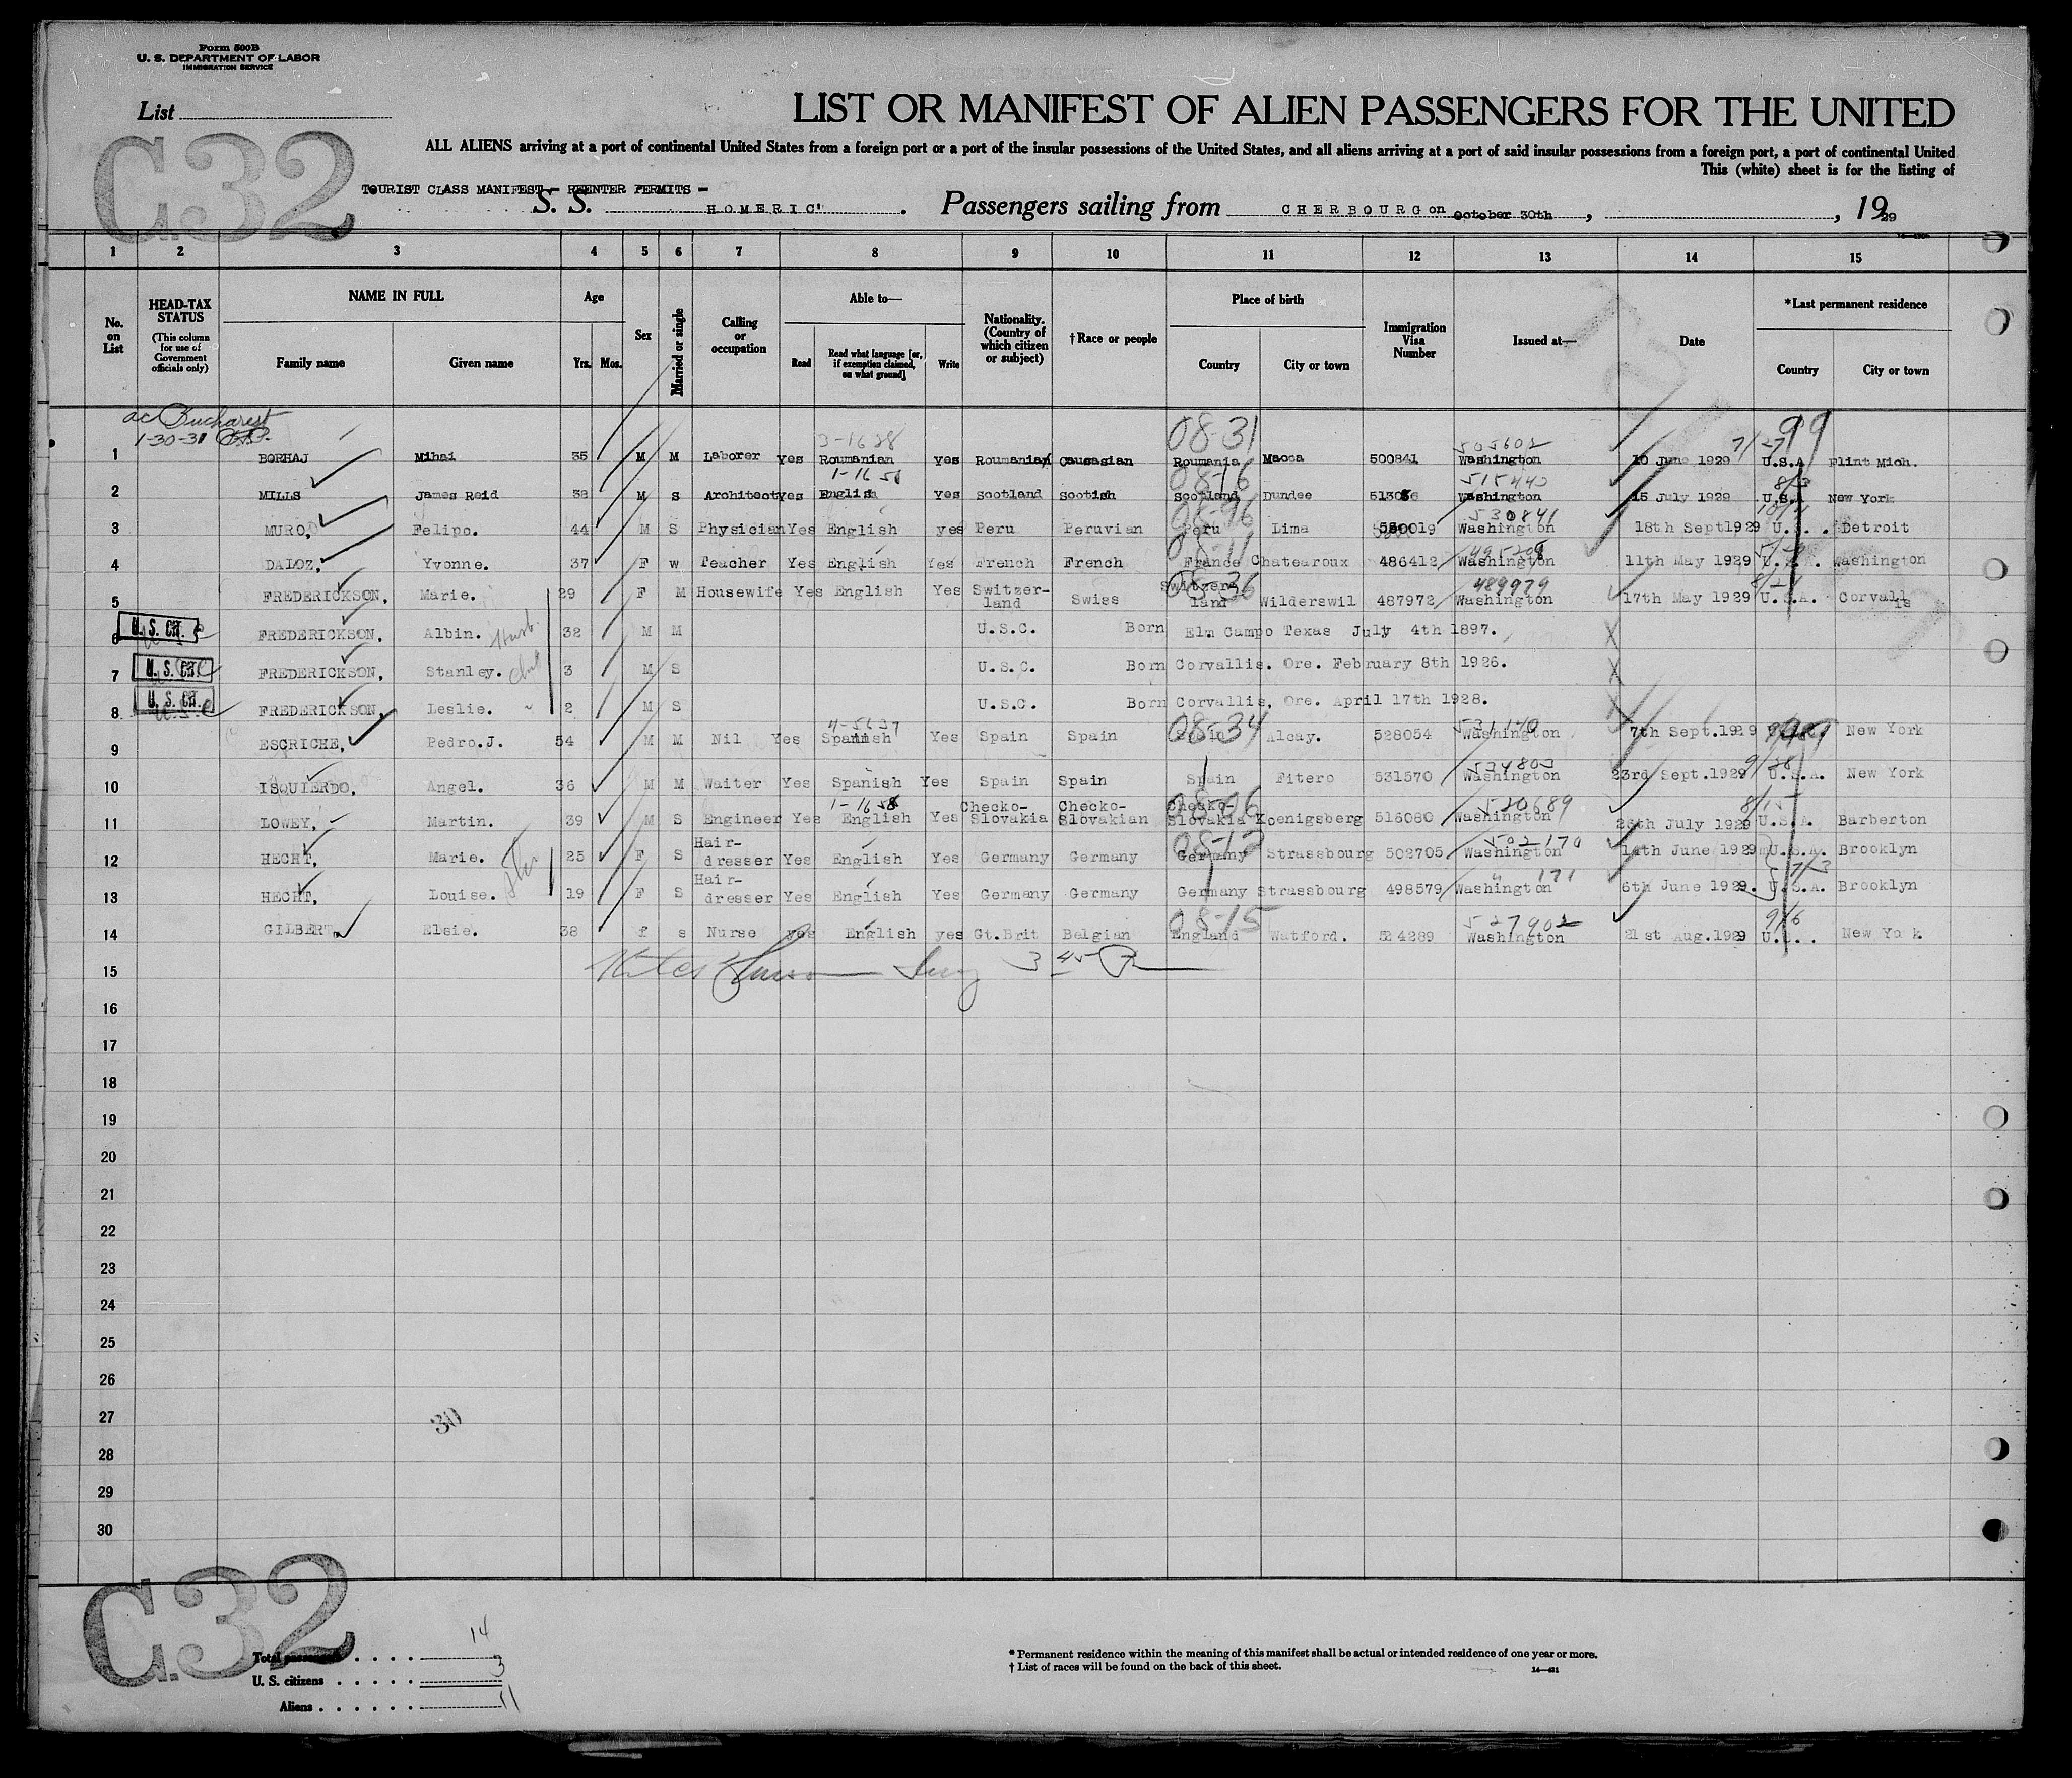 Form 500B
U. S. DEPARTMENT OF LABOR
IMMIGRATION SERVICE
List
C32
LIST OR MANIFEST OF ALIEN PASSENGERS FOR THE UNITED
ALL ALIENS arriving at a port of continental United States from a foreign port or a port of the insular possessions of the United States, and all aliens arriving at a port of said insular possessions from a foreign port, a port of continental United
This (white) sheet is for the listing of
TOURIST CLASS MANIFEST - REENTER PERMITS -
S. S. HOMERIC". Passengers sailing from CHERBOURG on October 30th, , 1929
1 2 3 4 5 6 7 8 9 10 11 12 13 14 15
No. on List
HEAD-TAX STATUS
(This column for use of Government officials only)
NAME IN FULL
Family name Given name
Age
Yrs. Mos.
Sex
Married or single
Calling or occupation
Able to—
Read Read what language [or, if exemption claimed, on what ground] Write
Nationality. (Country of which citizen or subject)
†Race or people
Place of birth
Country City or town
Immigration Visa Number
Issued at—
Date
*Last permanent residence
Country City or town
ac Bucharest
1-30-31
08-31 99
3-1628 505602 7/27
1 BORHAJ Mihai 35 M M Laborer yes Roumanian yes Roumanian Causasian Roumania Macea 500841 Washington 10 June 1929 U.S.A Flint Mich.
1-16 58 08-16 515443 8/3
2 MILLS James Reid 38 M S Architect yes English Yes Scotland Scotish Scotland Dundee Washington 15 July 1929 U.S. New York
08-96 530841
3 MURO, Felipo. 44 M S Physician Yes English yes Peru Peruvian Peru Lima Washington 18th Sept 1929 U. . . Detroit
08-11
4 DALOZ, Yvonne. 37 F w Teacher Yes English Yes French French France Chatearoux 486412 Washington 11th May 1929 U.S.A. Washington
08-36 489979
5 FREDERICKSON, Marie. 29 F M Housewife Yes English Yes Switzer-land Swiss Switzerland Wilderswil 487972 Washington 17th May 1929 U.S.A. Corvallis
6 U. S. Cit. FREDERICKSON, Albin. Husb. 32 M M U.S.C. Born Elm Campo Texas July 4th 1897.
7 U. S. Cit. FREDERICKSON, Stanley. 3 M S U.S.C. Born Corvallis. Ore. February 8th 1926.
8 U. S. Cit. FREDERICKSON, Leslie. 2 M S U.S.C. Born Corvallis, Ore. April 17th 1928.
08-34 531170
9 ESCRICHE, Pedro.J. 54 M M Nil Yes Spanish Yes Spain Spain Alcay. 528054 Washington 7th Sept.1929 New York
534803 9/28
10 ISQUIERDO, Angel. 36 M M Waiter Yes Spanish Yes Spain Spain Spain Fitero 531570 Washington 23rd Sept.1929 U.S.A. New York
1-16 58 08-06 520689 8/15
11 LOWEY, Martin. 39 M S Engineer Yes English Yes Checko-Slovakia Checko-Slovakian Checko-Slovakia Koenigsberg 516080 Washington 26th July 1929 U.S.A. Barberton
08-12 502170
12 HECHT, Marie. 25 F S Hair-dresser Yes English Yes Germany Germany Germany Strassbourg 502705 Washington 14th June 1929 U.S.A. Brooklyn
" 171 7/3
13 HECHT, Louise. 19 F S Hair-dresser Yes English Yes Germany Germany Germany Strassbourg 498579 Washington 6th June 1929. U.S.A. Brooklyn
08-15 527902 9/6
14 GILBERT, Elsie. 38 f s Nurse yes English yes Gt.Brit Belgian England Watford. 524289 Washington 21st Aug.1929 U. . . New Yo k
15 3 45 P
16
17
18
19
20
21
22
23
24
25
26
27
30
28
29
30
C.32
Total passengers 14
U. S. citizens 3
Aliens 11
* Permanent residence within the meaning of this manifest shall be actual or intended residence of one year or more.
† List of races will be found on the back of this sheet.
14—421